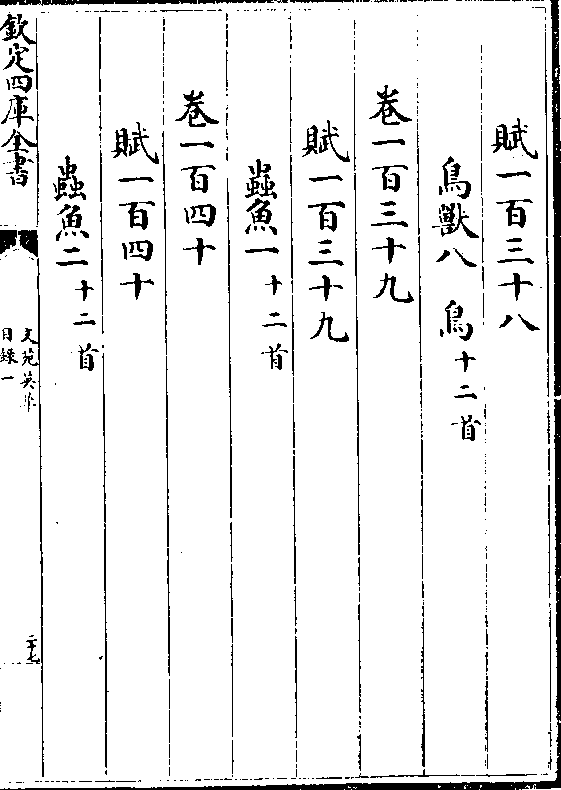 賦一百三十八
鳥獸八 鳥十二首
卷一百三十九
賦一百三十九
蟲魚一十二首
卷一百四十
賦一百四十
蟲魚二十二首
欽定四庫全書
文苑英華
目録一
二十七